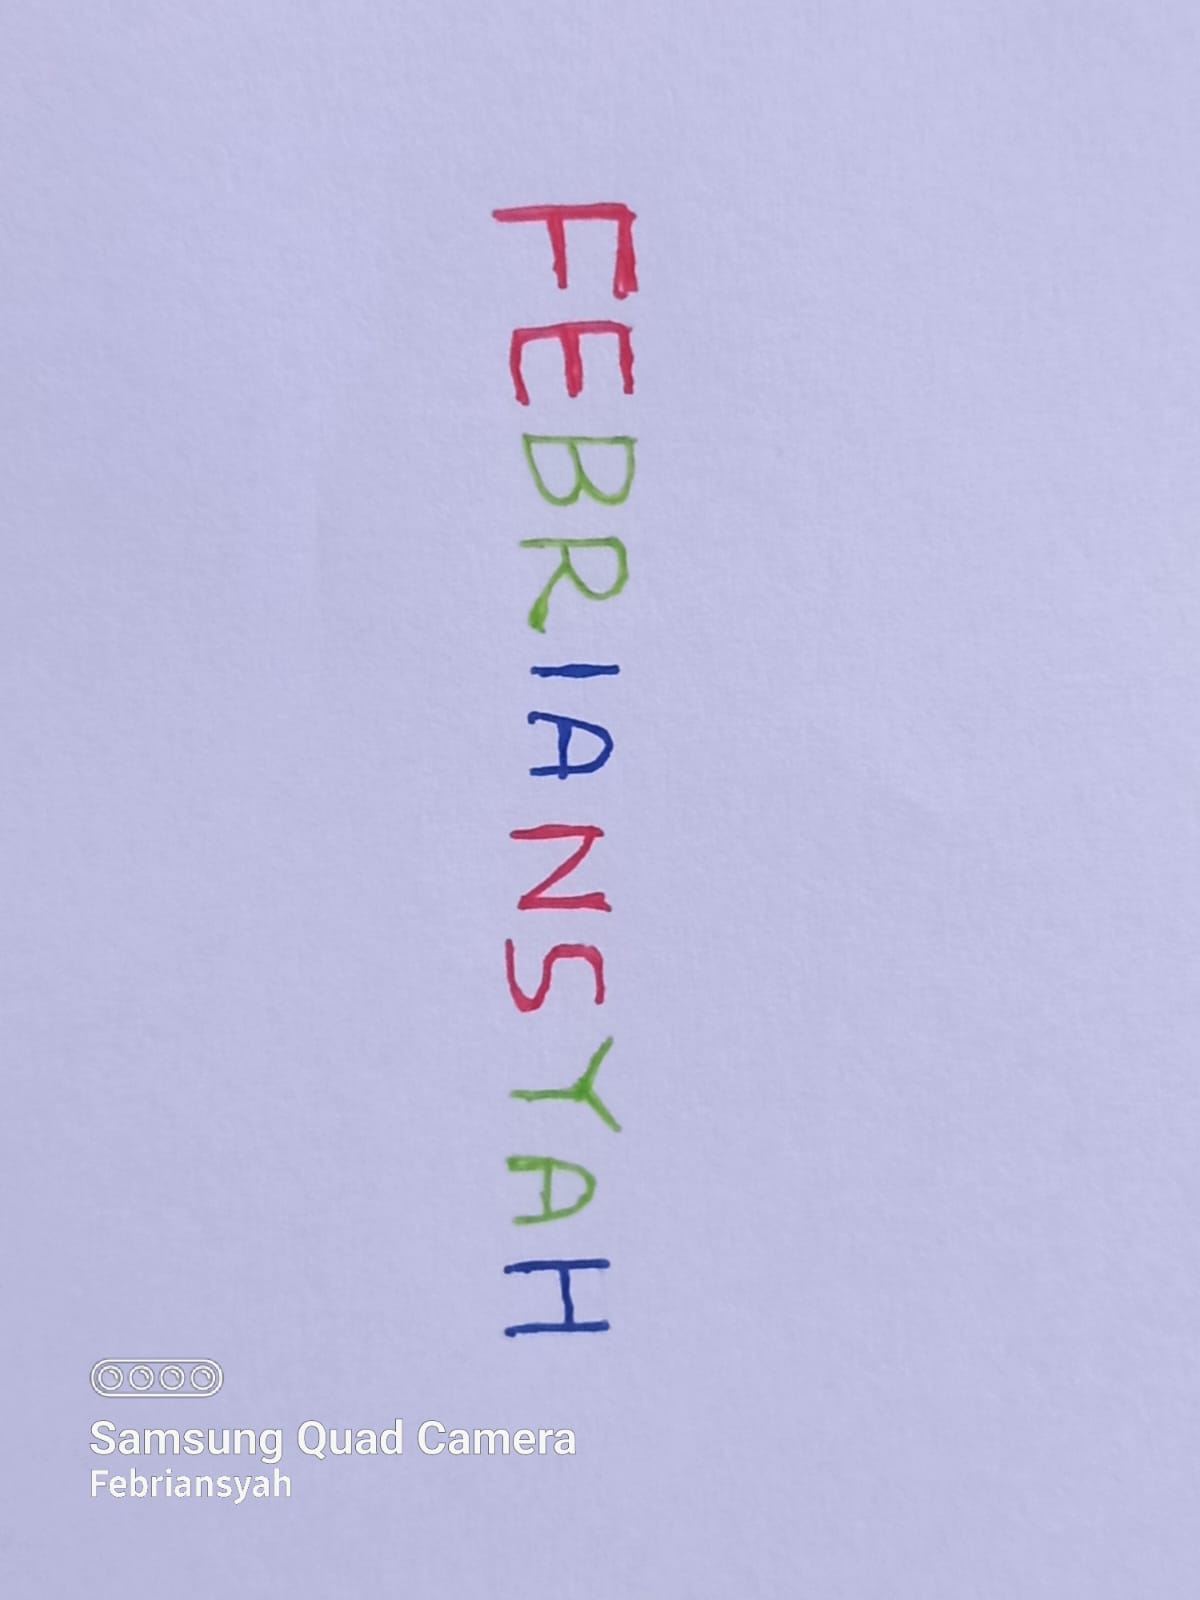 FEBRIANSYAH
Samsung Quad Camera
Febriansyah